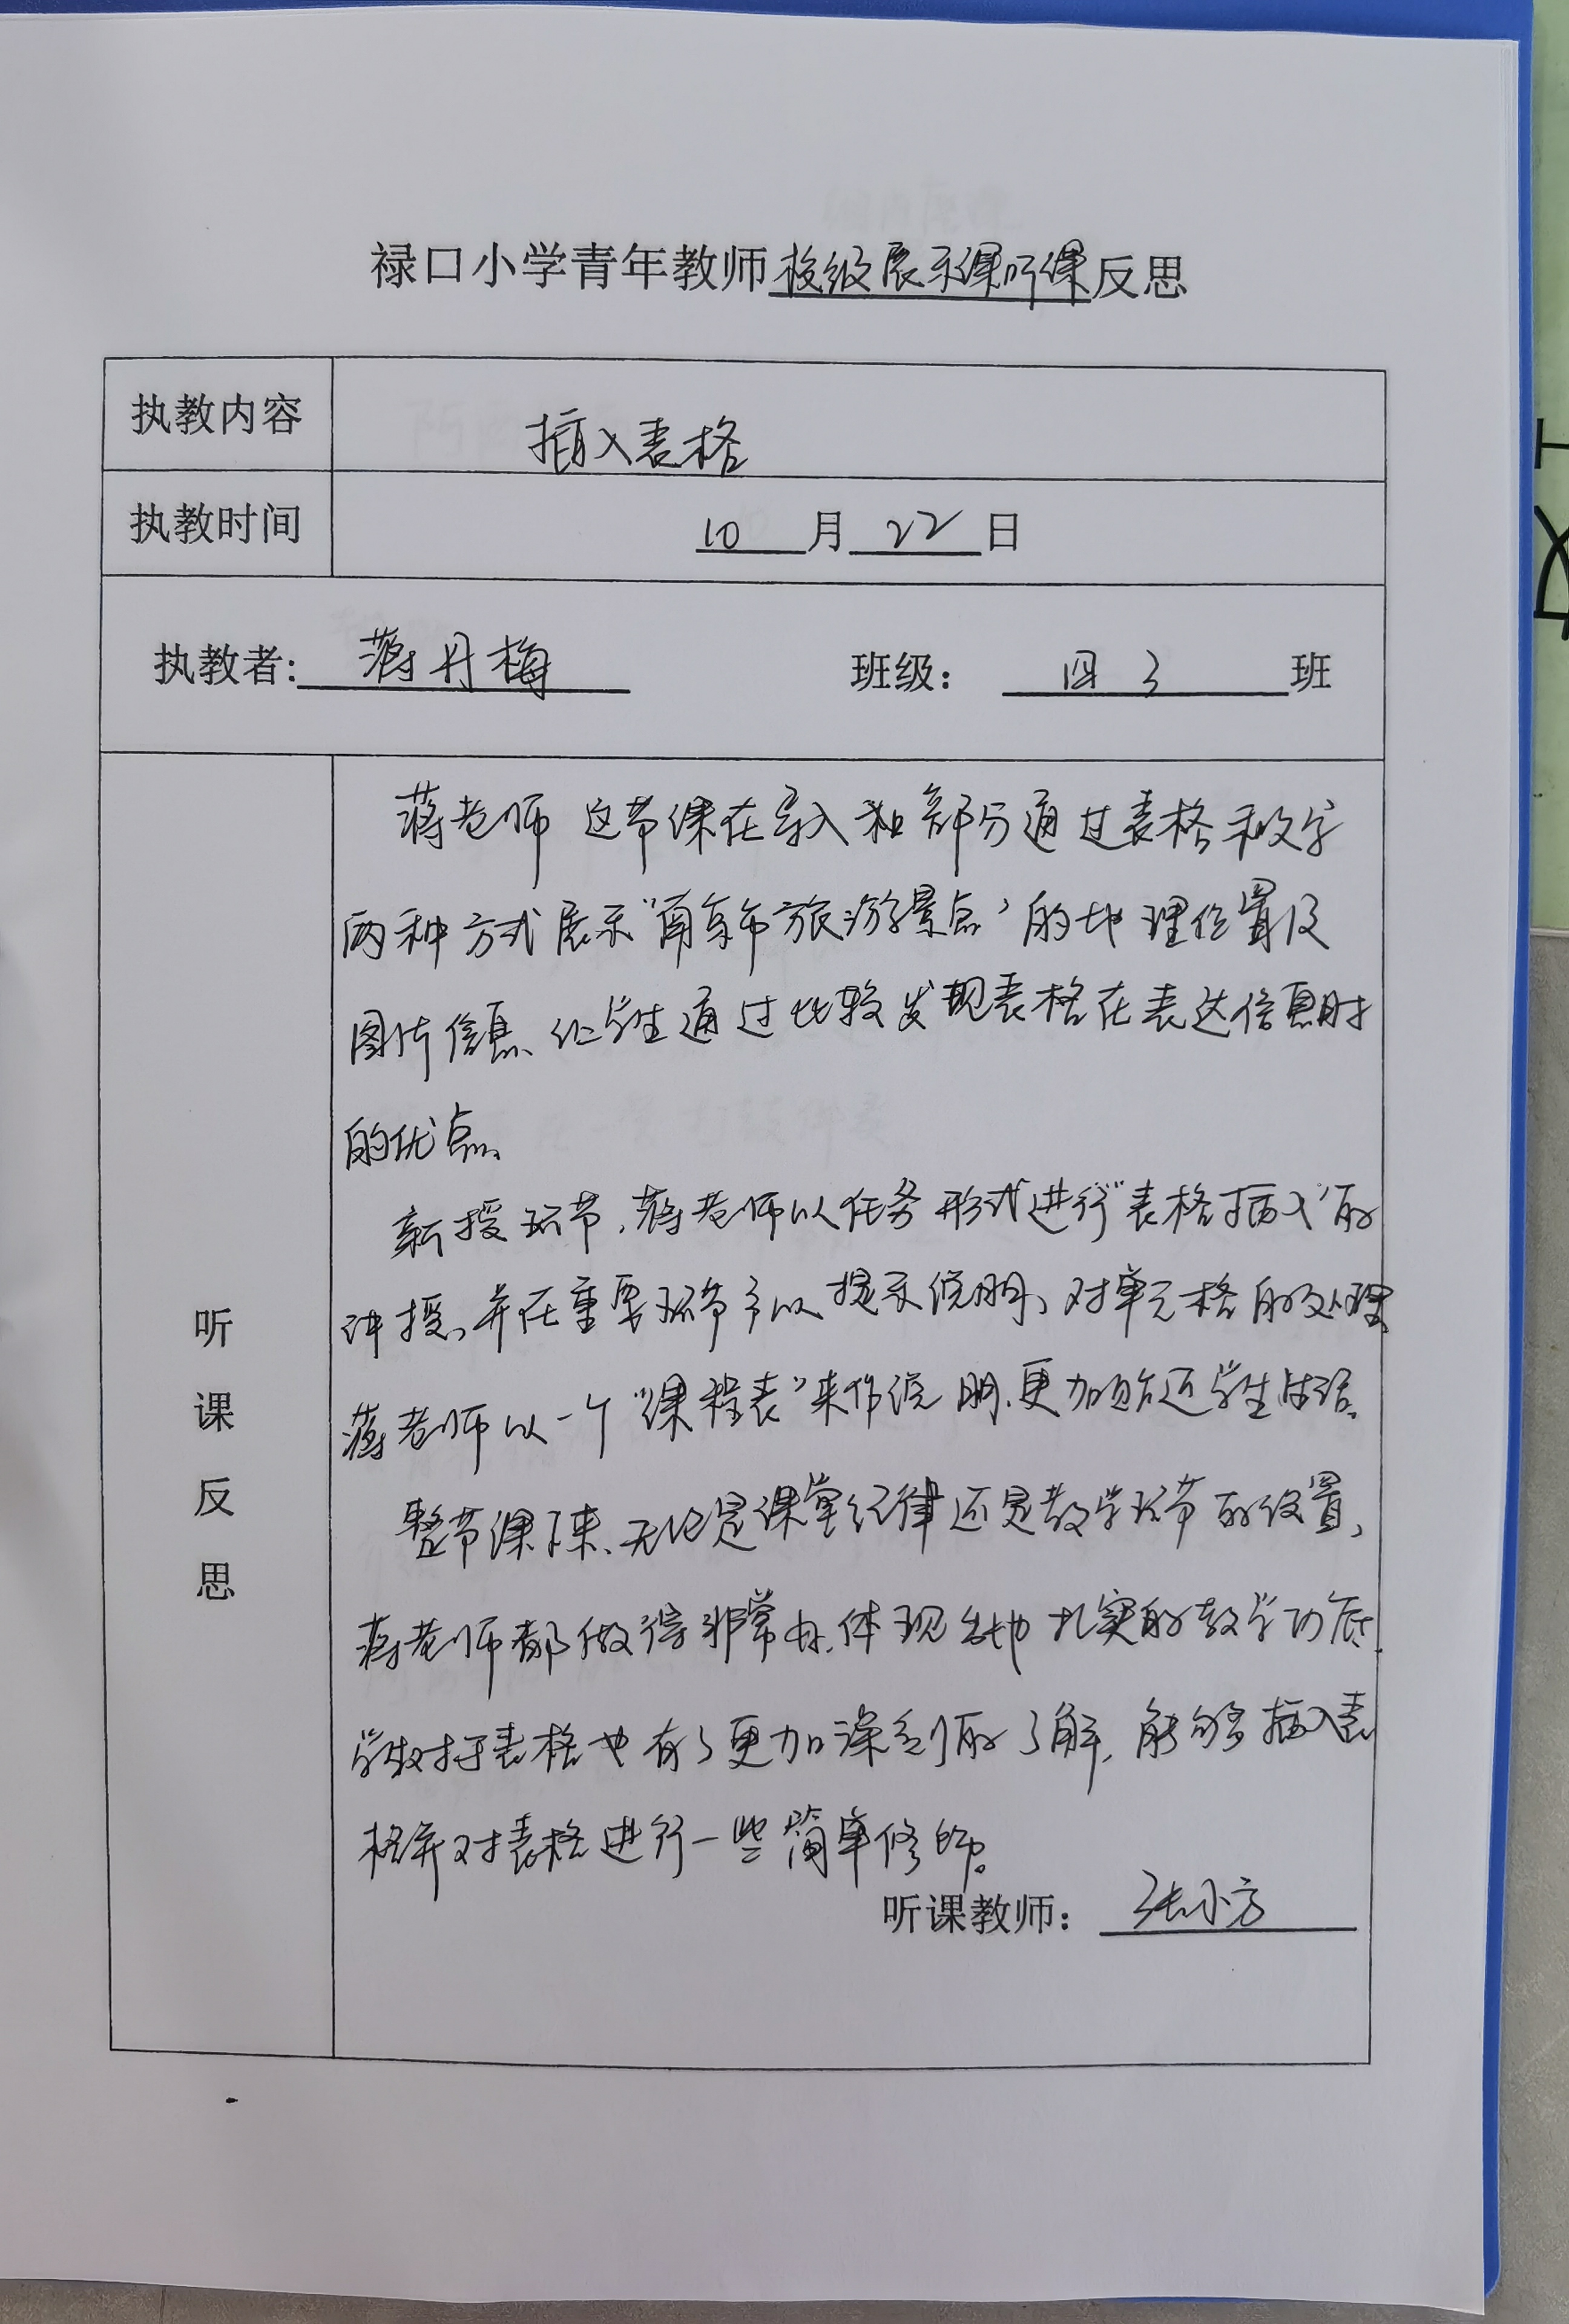 禄口小学青年教师校级展示课听课反思
执教内容 插入表格
执教时间 10月22日
执教者: 蒋丹梅 班级: 四3班
听课反思
蒋老师这节课在导入和部分通过表格和文字
两种方式展示“南京市旅游景点”的地理位置及
图片信息、让学生通过比较发现表格在表达信息时
的优点、
新授环节,蒋老师以任务形式进行“表格插入”的
讲授,并在重要环节予以提示说明、对单元格的处理,
蒋老师以一个“课程表”来作说明.更加贴近学生生活.
整节课下来、无论是课堂纪律还是教学环节的设置,
蒋老师都做得非常好.体现出她扎实的教学功底.
学生对于表格也有了更加深刻的了解,能够插入表
格并对表格进行一些简单修饰。
听课教师: 张小方